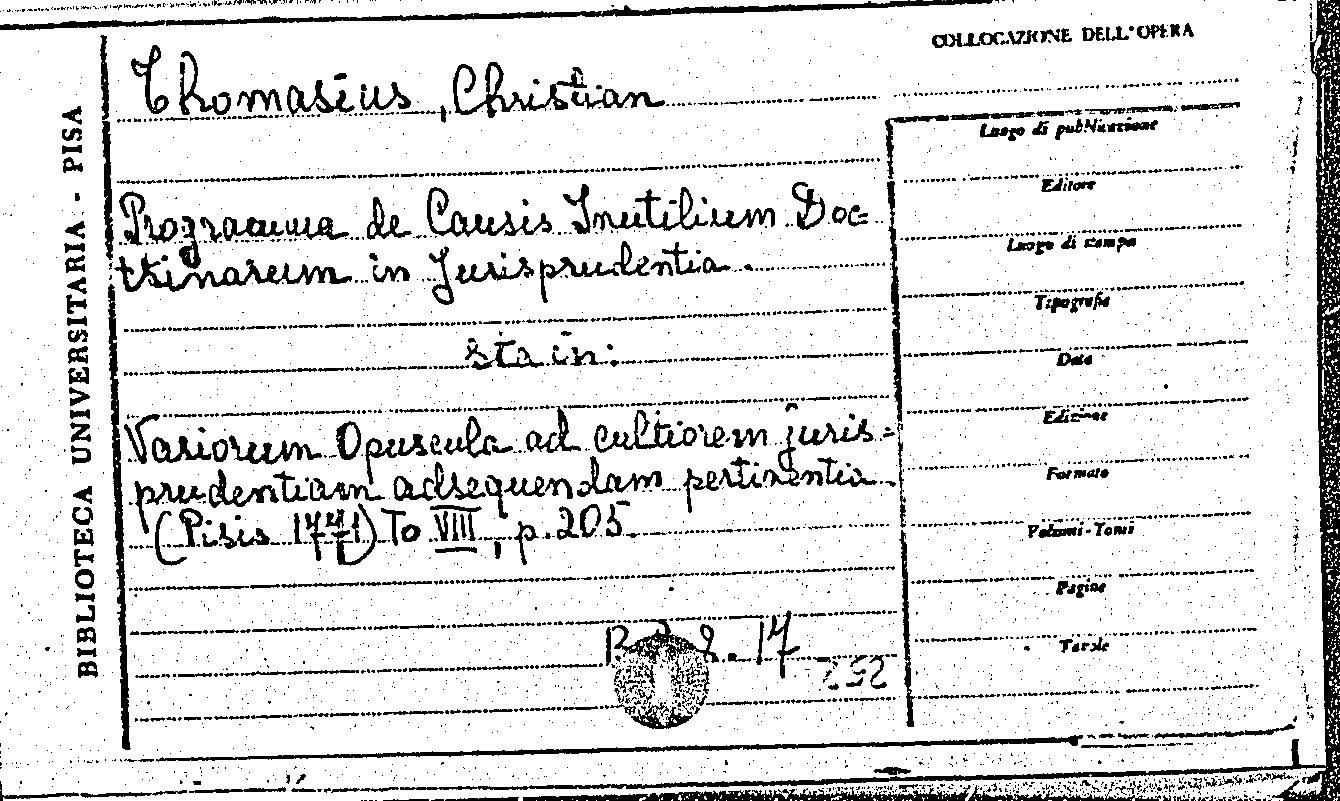 BIBLIOTECA UNIVERSITARIA - PISA
Thomasius, Christian
Programma de Causis Inutilium Doc=
trinarum in Jurisprudentia.
sta in:
Variorum Opuscula ad cultiorem juris=
prudentiam adsequendam pertinentia.
(Pisis 1771) To VIII, p. 205.
8. 17
252
COLLOCAZIONE DELL'OPERA
Luogo di pubblicazione
Editore
Luogo di stampa
Tipografia
Data
Edizione
Formato
Volumi-Tomi
Pagine
Tavole